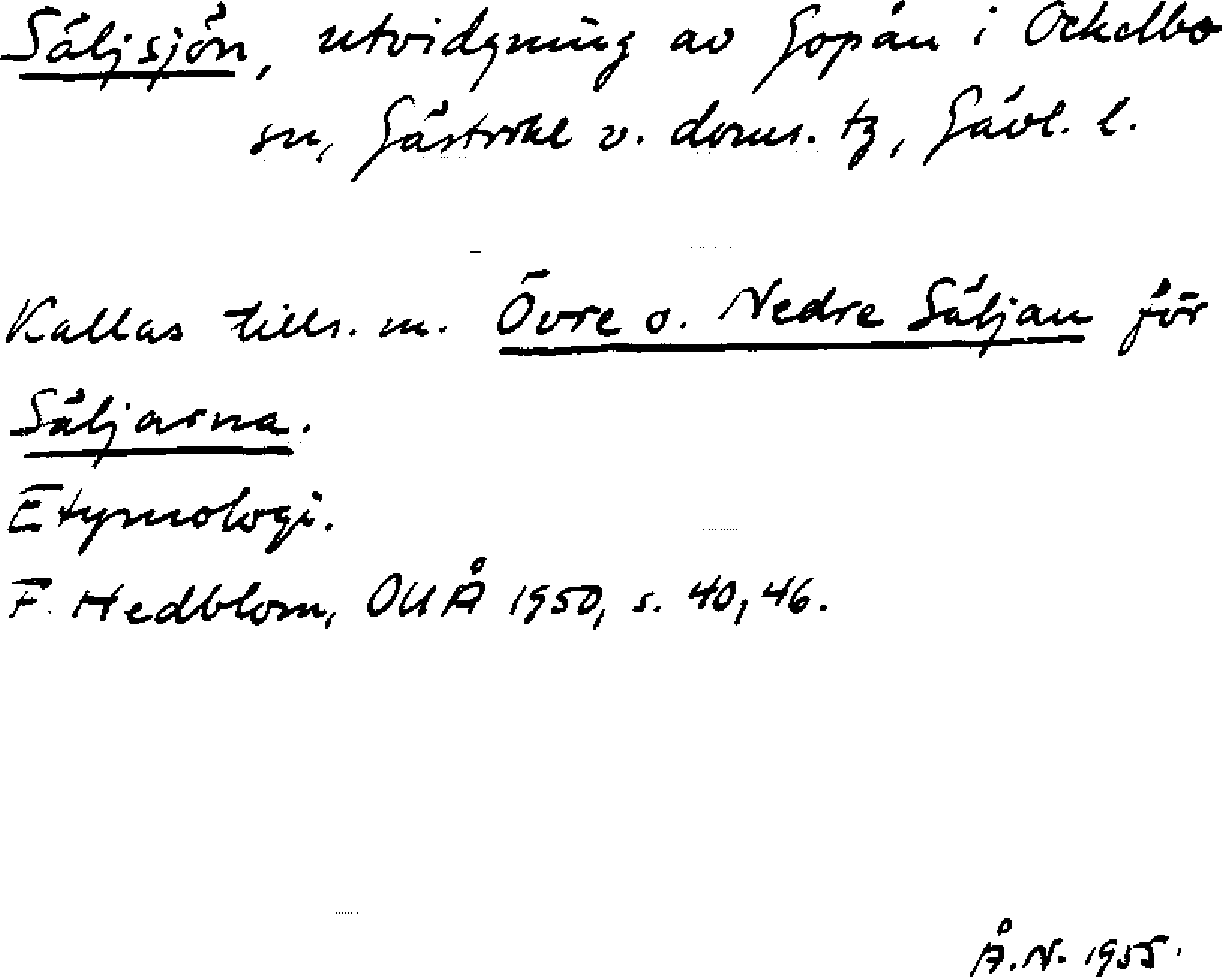 Säljsjön, utvidgning av Gopån i Ockelbo
sn, Gästrikl v. doms. tg, Gävl. l.
Kallas tills. m. Övre o. Nedre Säljan för
Säljarna.
Etymologi.
F. Hedblom, OUÅ 1950, s. 40, 46.
Å.N. 1955.